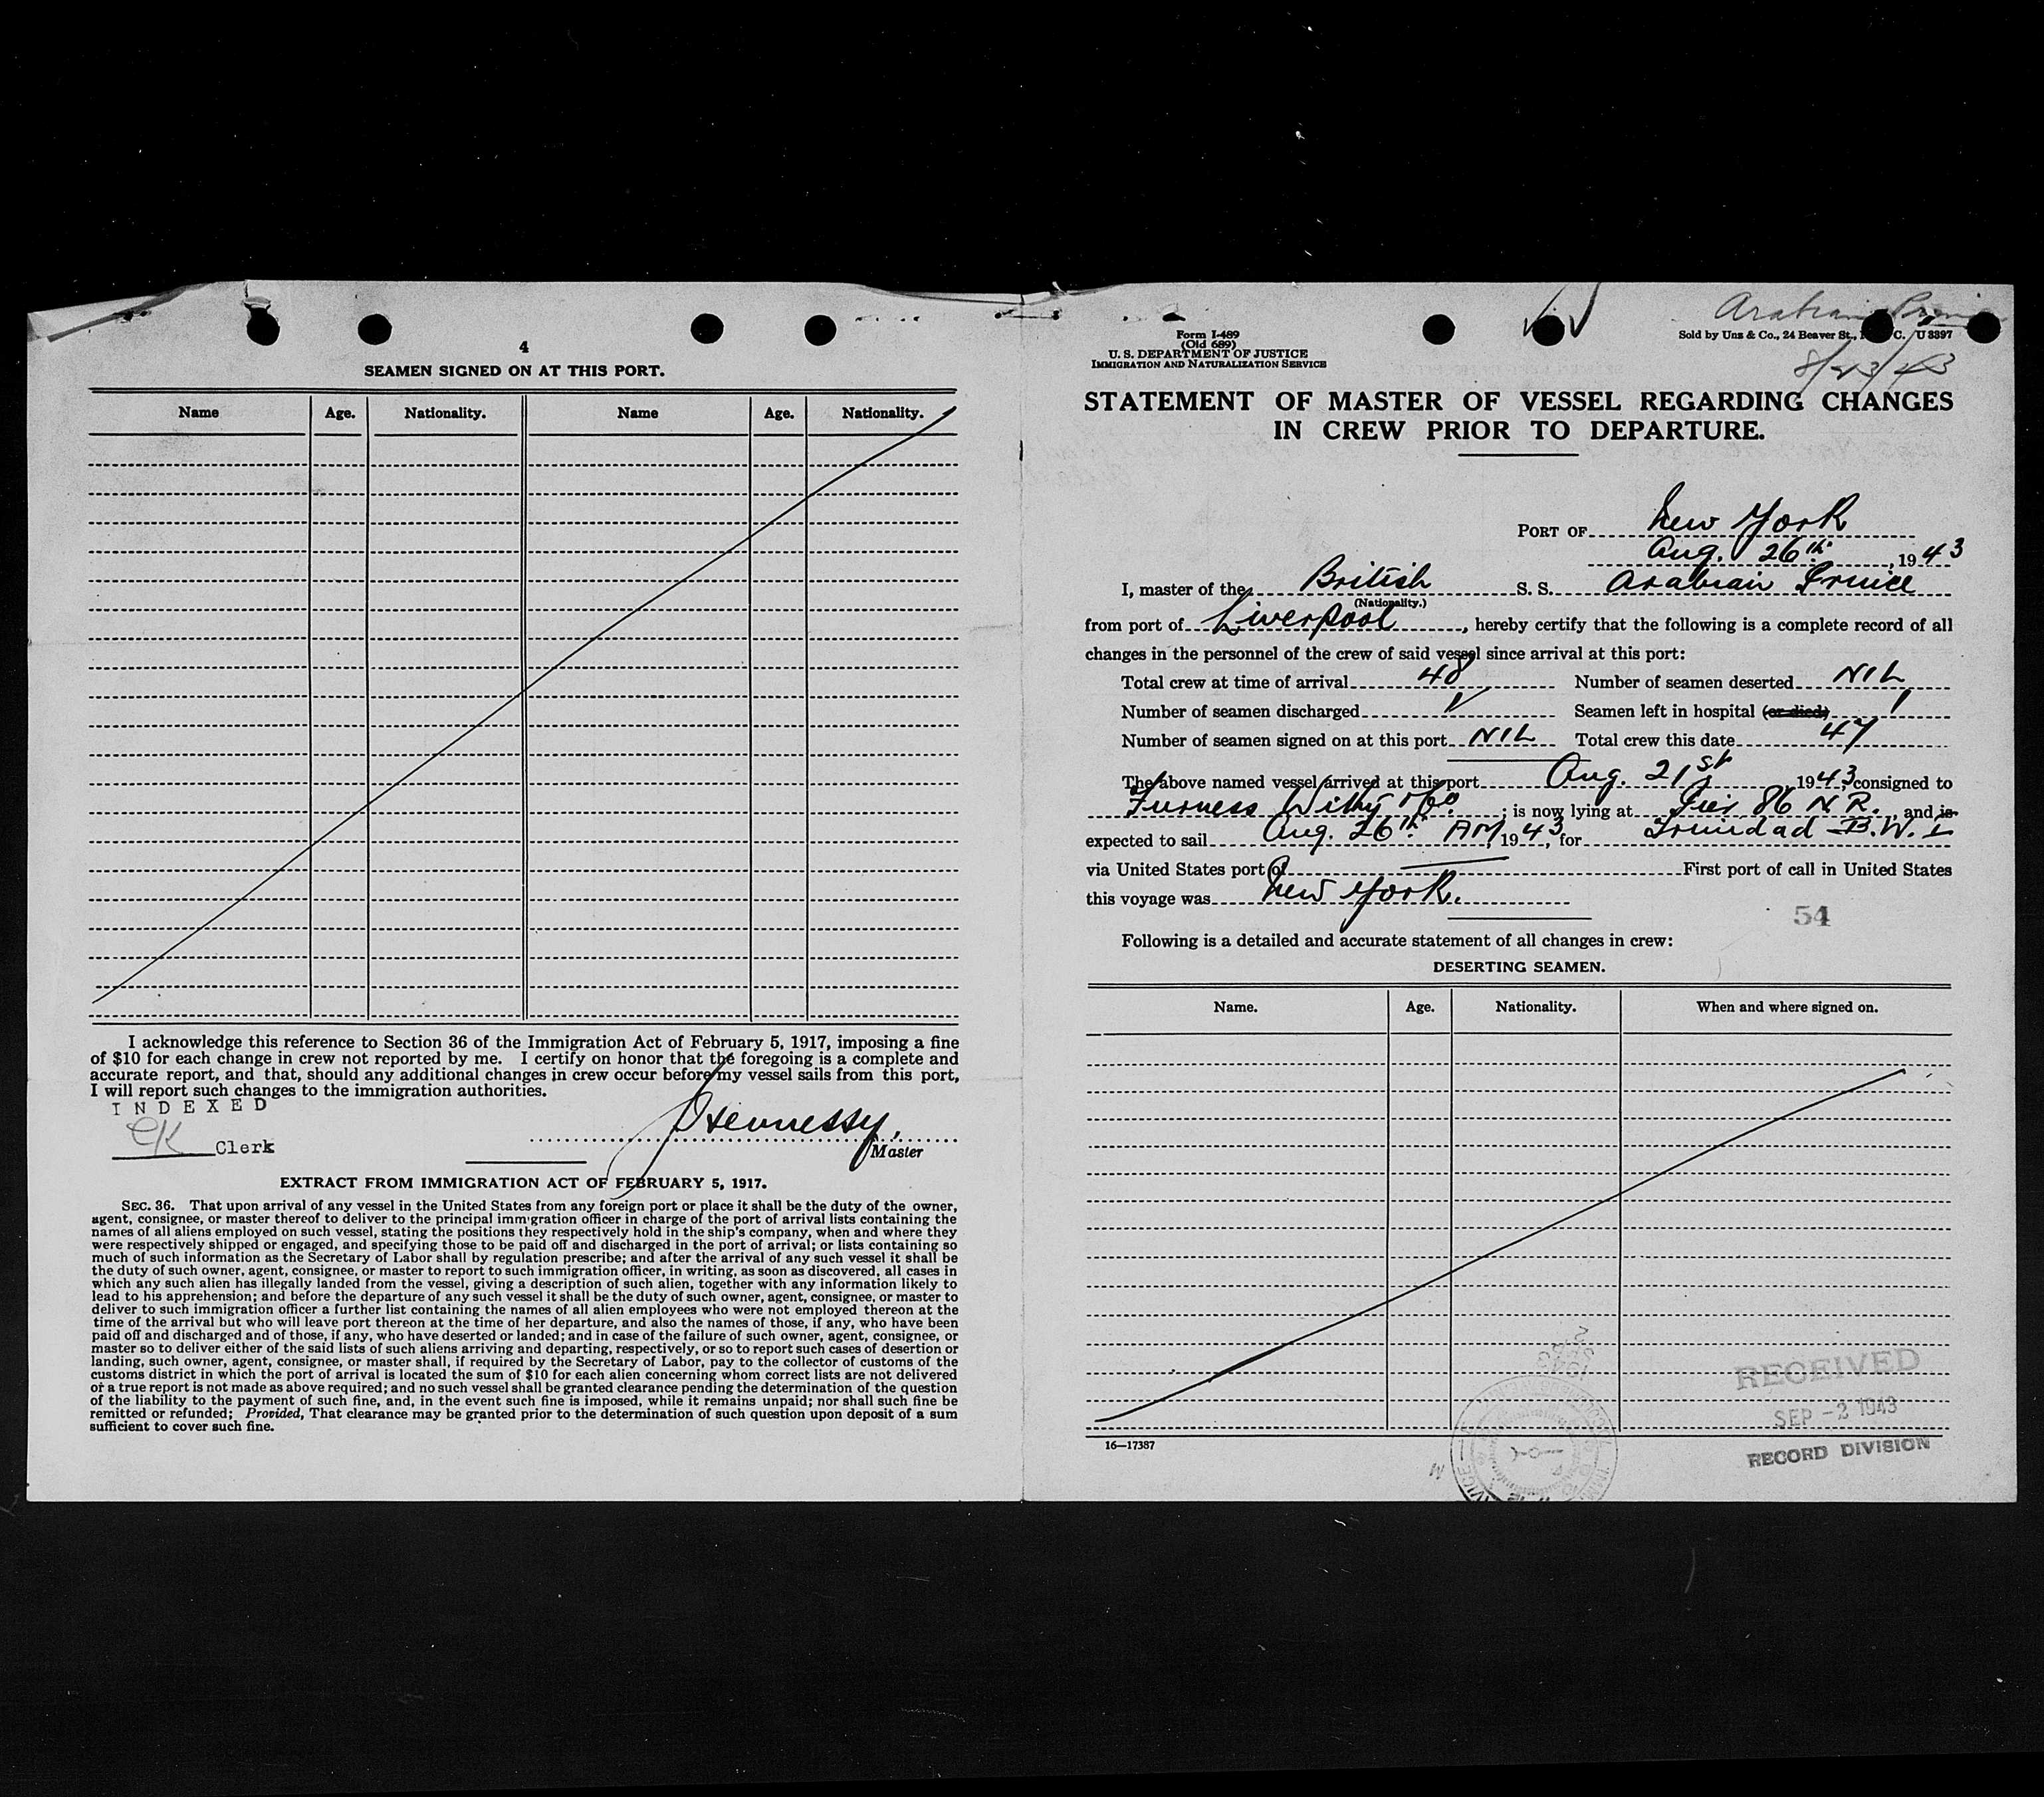 4
SEAMEN SIGNED ON AT THIS PORT.
Name Age. Nationality. Name Age. Nationality.
I acknowledge this reference to Section 36 of the Immigration Act of February 5, 1917, imposing a fine
of $10 for each change in crew not reported by me. I certify on honor that the foregoing is a complete and
accurate report, and that, should any additional changes in crew occur before my vessel sails from this port,
I will report such changes to the immigration authorities.
INDEXED
CK Clerk
Hennessy,
Master
EXTRACT FROM IMMIGRATION ACT OF FEBRUARY 5, 1917.
SEC. 36. That upon arrival of any vessel in the United States from any foreign port or place it shall be the duty of the owner,
agent, consignee, or master thereof to deliver to the principal immigration officer in charge of the port of arrival lists containing the
names of all aliens employed on such vessel, stating the positions they respectively hold in the ship's company, when and where they
were respectively shipped or engaged, and specifying those to be paid off and discharged in the port of arrival; or lists containing so
much of such information as the Secretary of Labor shall by regulation prescribe; and after the arrival of any such vessel it shall be
the duty of such owner, agent, consignee, or master to report to such immigration officer, in writing, as soon as discovered, all cases in
which any such alien has illegally landed from the vessel, giving a description of such alien, together with any information likely to
lead to his apprehension; and before the departure of any such vessel it shall be the duty of such owner, agent, consignee, or master to
deliver to such immigration officer a further list containing the names of all alien employees who were not employed thereon at the
time of the arrival but who will leave port thereon at the time of her departure, and also the names of those, if any, who have been
paid off and discharged and of those, if any, who have deserted or landed; and in case of the failure of such owner, agent, consignee, or
master so to deliver either of the said lists of such aliens arriving and departing, respectively, or so to report such cases of desertion or
landing, such owner, agent, consignee, or master shall, if required by the Secretary of Labor, pay to the collector of customs of the
customs district in which the port of arrival is located the sum of $10 for each alien concerning whom correct lists are not delivered
or a true report is not made as above required; and no such vessel shall be granted clearance pending the determination of the question
of the liability to the payment of such fine, and, in the event such fine is imposed, while it remains unpaid; nor shall such fine be
remitted or refunded; Provided, That clearance may be granted prior to the determination of such question upon deposit of a sum
sufficient to cover such fine.
Arabian Prince
Form I-489
(Old 689)
U. S. DEPARTMENT OF JUSTICE
IMMIGRATION AND NATURALIZATION SERVICE
Sold by Uns & Co., 24 Beaver St., C. U 3397
8/23/43
STATEMENT OF MASTER OF VESSEL REGARDING CHANGES
IN CREW PRIOR TO DEPARTURE.
PORT OF New York
Aug. 26th, 1943
I, master of the British S. S. Arabian Prince
(Nationality.)
from port of Liverpool, hereby certify that the following is a complete record of all
changes in the personnel of the crew of said vessel since arrival at this port:
Total crew at time of arrival 48 Number of seamen deserted NIL
Number of seamen discharged Seamen left in hospital (or died) 1
Number of seamen signed on at this port NIL Total crew this date 47
The above named vessel arrived at this port Aug. 21st, 1943, consigned to
Furness Withy & Co.; is now lying at Pier 86 N.R., and is
expected to sail Aug. 26th AM, 1943, for Trinidad B.W.I
via United States port of First port of call in United States
this voyage was New York.
54
Following is a detailed and accurate statement of all changes in crew:
DESERTING SEAMEN.
Name. Age. Nationality. When and where signed on.
RECEIVED
SEP -2 1943
RECORD DIVISION
16—17387